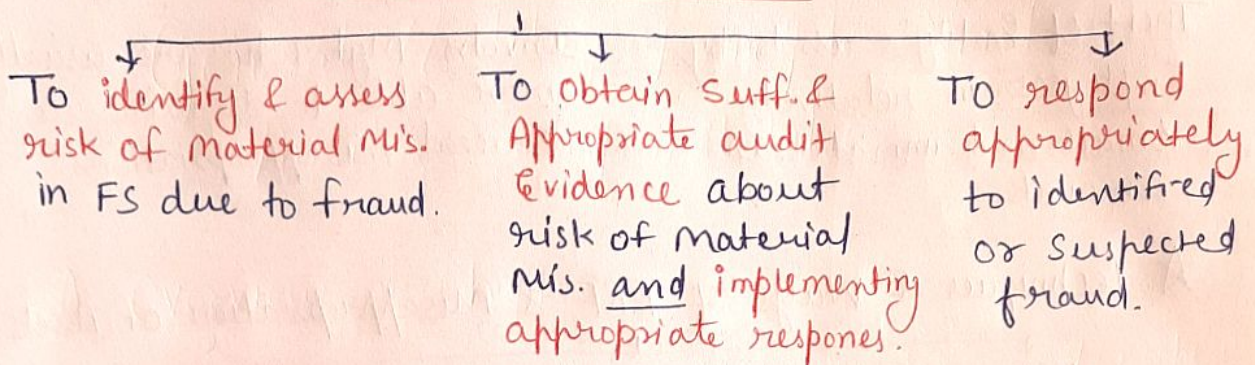 To identify & assess
risk of material Mis.
in FS due to fraud.
To obtain Suff. &
Appropriate audit
Evidence about
risk of material
Mis. and implementing
appropriate respones.
To respond
appropriately
to identified
or suspected
fraud.